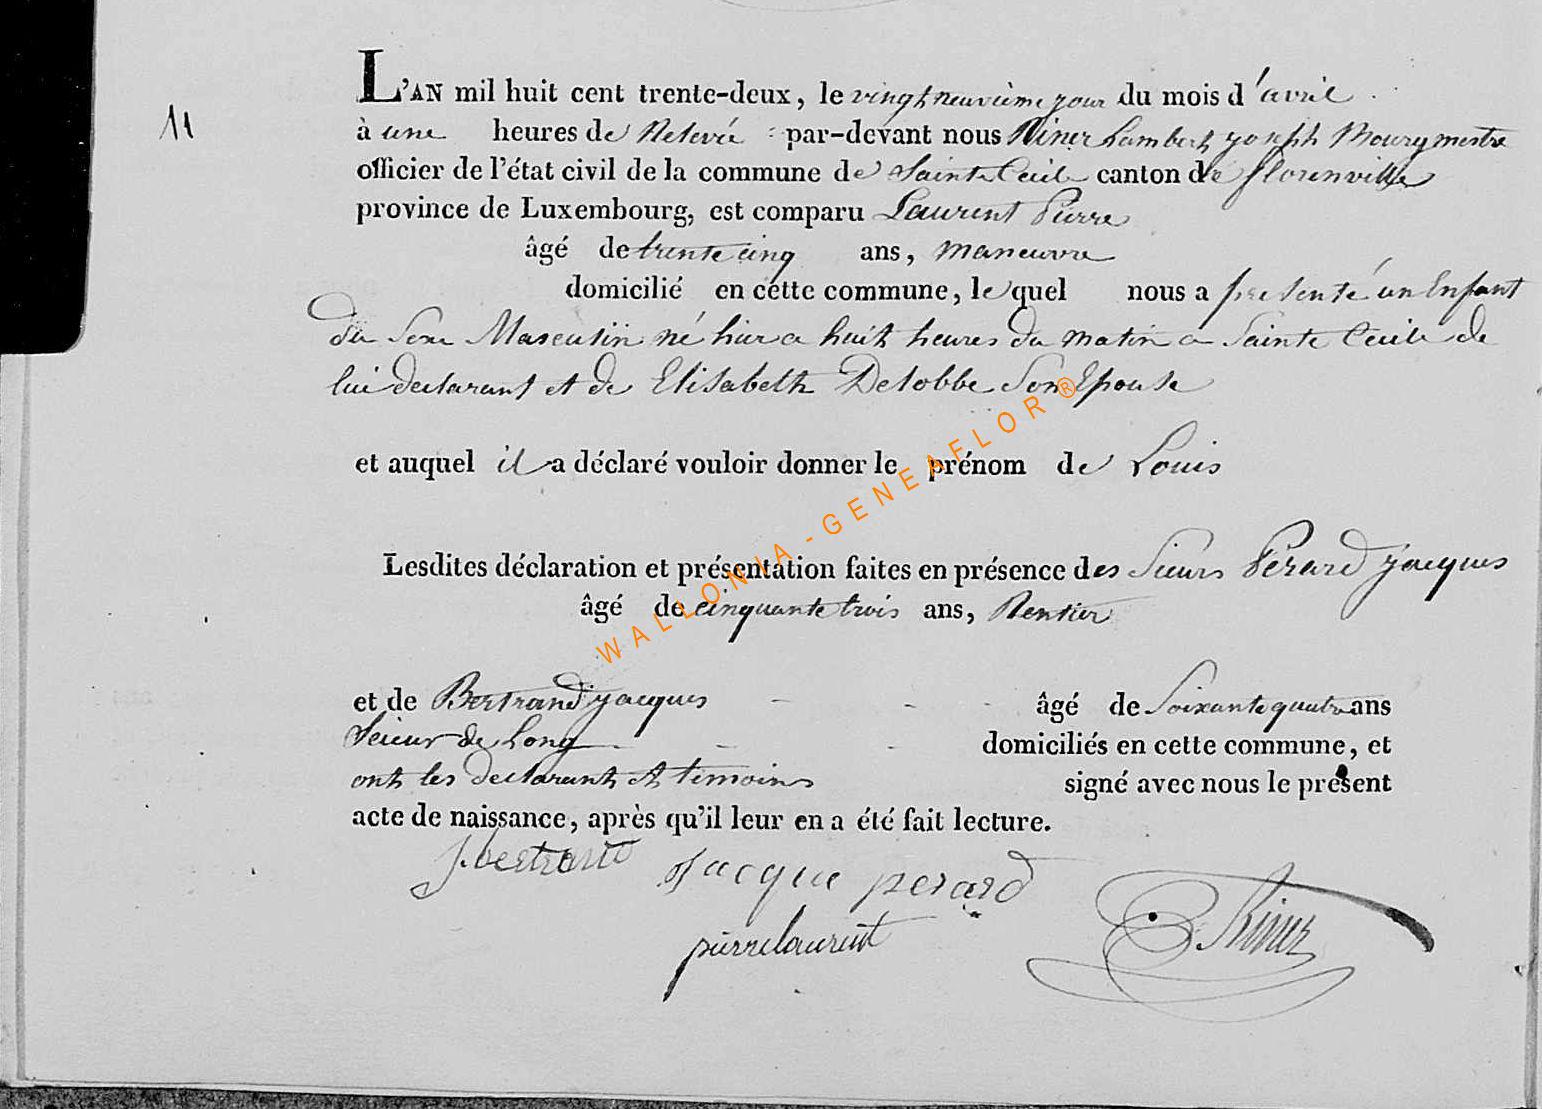 11
L'AN mil huit cent trente-deux, le vingt neuvième jour du mois d'avril
à une heures de Relevée par-devant nous Riner Lambert joseph Bourgmestre
officier de l'état civil de la commune de Sainte Cecile canton de florenville
province de Luxembourg, est comparu Laurent Pierre
âgé de trente cinq ans, maneuvre
domicilié en cette commune, lequel nous a presenté un Enfant
du sexe Masculin né hier a huit heures du matin a Sainte Cecile de
lui declarant et de Elisabeth Delobbe Son Epouse
et auquel il a déclaré vouloir donner le prénom de Louis
Lesdites déclaration et présentation faites en présence des Sieurs Pérard jacques
âgé de cinquante trois ans, Rentier
et de Bertrand jacques âgé de Soixante quatre ans
Scieur de Long domiciliés en cette commune, et
ont les declarants et temoins signé avec nous le présent
acte de naissance, après qu'il leur en a été fait lecture.
J. bertrand Jacque perard
pierre laurent Riner
WALLONIA - GENEAFLOR ®